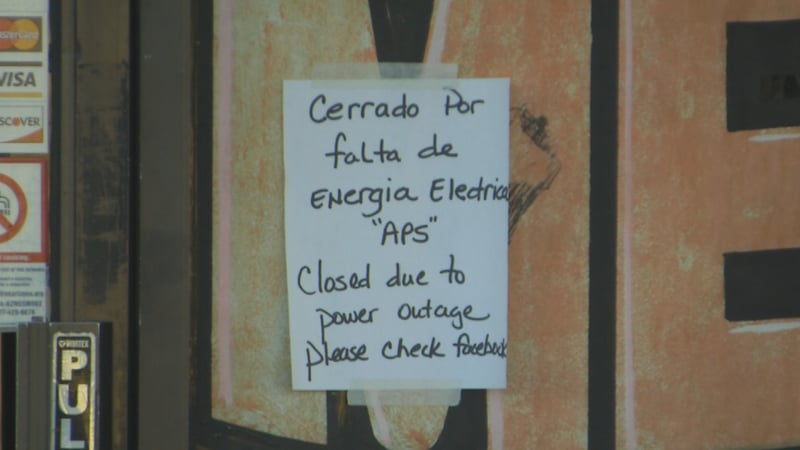 MasterCard
VISA
DISCOVER
Cerrado Por
falta de
ENergia Electrica
"APS"
Closed due to
power outage
please check facebook
PUL